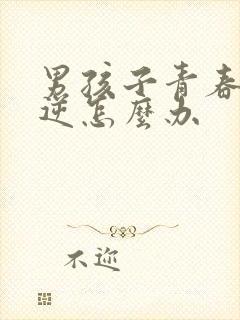 男孩子青春
逆怎麼办
不迩